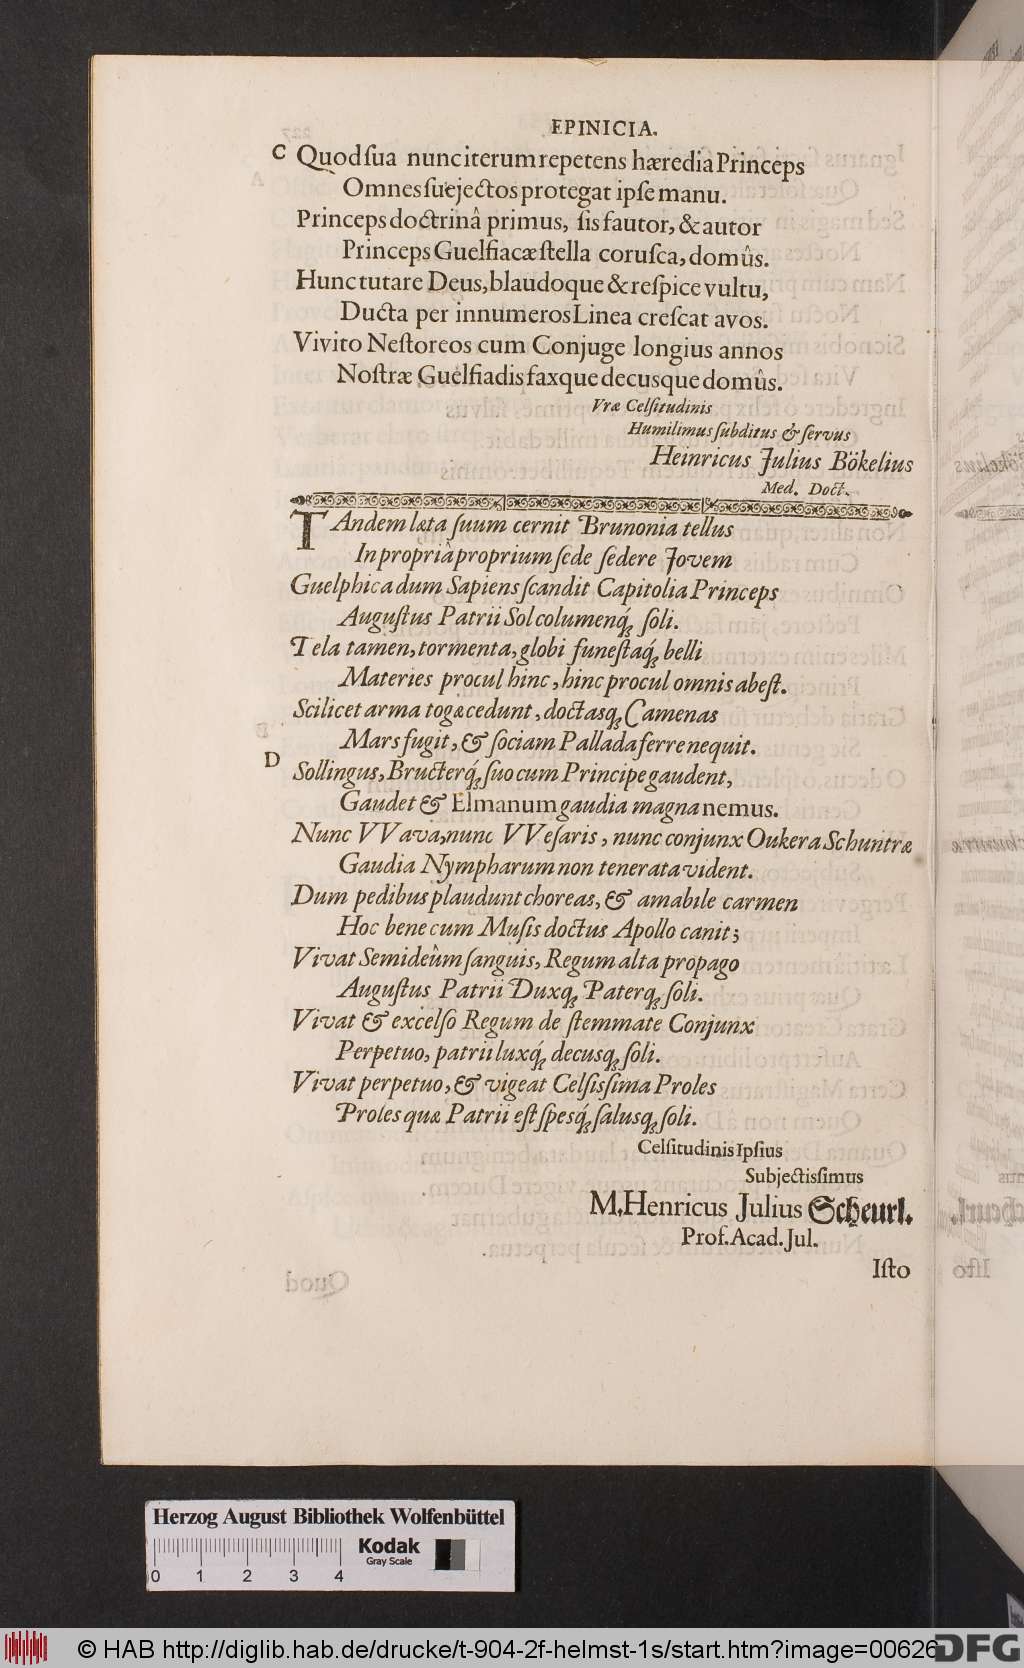 EPINICIA.
C Quod sua nunc iterum repetens hæredia Princeps
Omnes suejectos protegat ipse manu.
Princeps doctrinâ primus, sis fautor, & autor
Princeps Guelfiacæ stella corusca, domûs.
Hunc tutare Deus, blaudoque & respice vultu,
Ducta per innumeros Linea crescat avos.
Vivito Nestoreos cum Conjuge longius annos
Nostræ Guelfiadis faxque decusque domûs.
Vræ Celsitudinis
Humilimus subditus & servus
Heinricus Julius Bökelius
Med. Doct.
TAndem læta suum cernit Brunonia tellus
In propriâ proprium sede sedere Jovem
Guelphica dum Sapiens scandit Capitolia Princeps
Augustus Patrii Sol columenq́; soli.
Tela tamen, tormenta, globi funestaq́; belli
Materies procul hinc, hinc procul omnis abest.
Scilicet arma togæ cedunt, doctasq; Camenas
Mars fugit, & sociam Pallada ferre nequit.
D Sollingus, Bructerq́; suo cum Principe gaudent,
Gaudet & Elmanum gaudia magna nemus.
Nunc VVava, nunc VVesaris, nunc conjunx Oukera Schuntræ
Gaudia Nympharum non tenerata vident.
Dum pedibus plaudunt choreas, & amabile carmen
Hoc bene cum Musis doctus Apollo canit;
Vivat Semideûm sanguis, Regum alta propago
Augustus Patrii Duxq; Paterq; soli.
Vivat & excelso Regum de stemmate Conjunx
Perpetuo, patrii luxq́; decusq; soli.
Vivat perpetuo, & vigeat Celsissima Proles
Proles quæ Patrii est spesq́; salusq; soli.
Celsitudinis Ipsius
Subjectissimus
M. Henricus Julius Scheurl.
Prof. Acad. Jul.
Isto
Herzog August Bibliothek Wolfenbüttel
Kodak
Gray Scale
0 1 2 3 4
© HAB http://diglib.hab.de/drucke/t-904-2f-helmst-1s/start.htm?image=00626
DFG